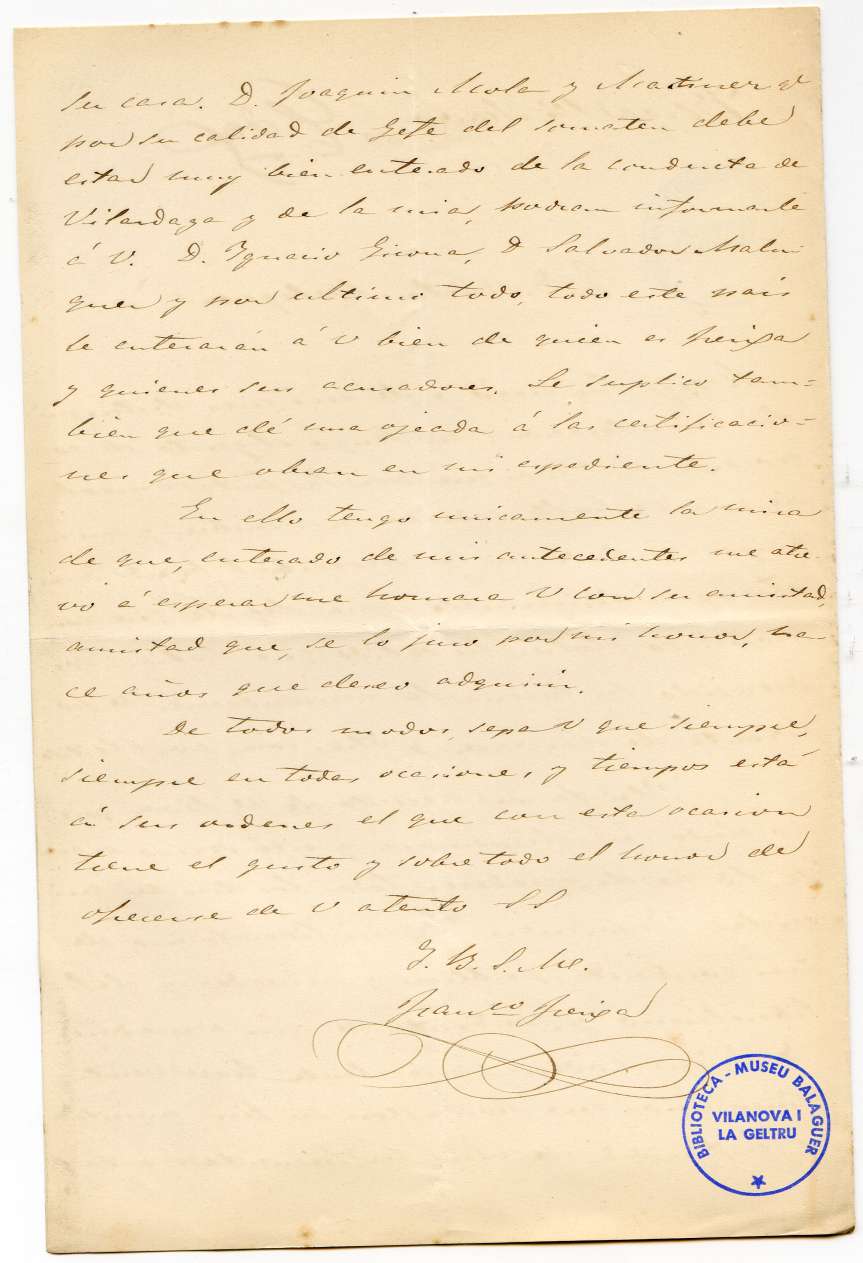 su casa. D. Joaquin Mola y Martinez q.e
por su calidad de Gefe del somaten debe
estar muy bien enterado de la conducta de
Vilardaga y de la mia, podran informarle
á V. D. Ignacio Girona, D Salvador Malu
quer y por ultimo todo, todo este pais
le enterarán á V bien de quien es Freixa
y quienes sus acusadores. Le suplico tam=
bien que dé una ojeada á las certificacio=
nes que obran en mi espediente.
En ello tengo unicamente la mira
de que, enterado de mis antecedentes me atre-
vo á esperar me honrara V con su amistad,
amistad que, se lo juro por mi honor, ha-
ce años que deseo adquirir.
De todos modos, sepa V que siempre,
siempre en todas ocasiones, y tiempos está
á sus ordenes el que con esta ocasion
tiene el gusto y sobre todo el honor de
ofrecerse de V atento SS
Q. B. S. M.
Fran.co Freixa
BIBLIOTECA - MUSEU BALAGUER
VILANOVA I
LA GELTRU